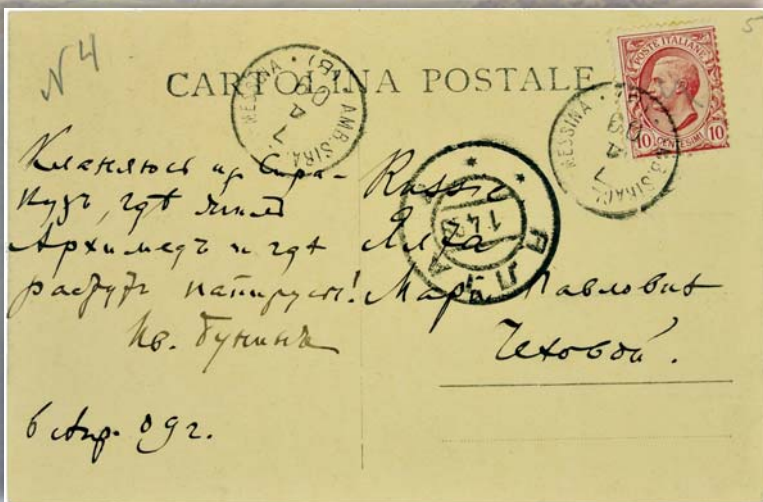 N 4
5
CARTOLINA POSTALE
POSTE ITALIANE
10 CENTESIMI 10
MESSINA · AMB. SIRAC.
7 4 09
MESSINA · AMB. SIRAC.
7 4 09
ЯЛТА
1 4
Кланяюсь из Сира-
кузъ, гдѣ жилъ
Архимедъ и гдѣ
растутъ папирусы!
Ив. Бунинъ
6 Апр. 09 г.
Russie
Ялта
Маріи Павловнѣ
Чеховой.